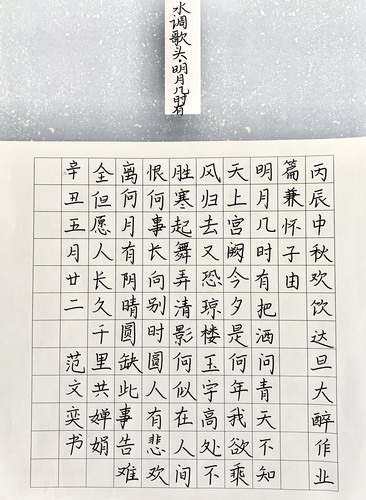 水调歌头·明月几时有
丙辰中秋欢饮达旦大醉作业
篇兼怀子由
明月几时有把酒问青天不知
天上宫阙今夕是何年我欲乘
风归去又恐琼楼玉宇高处不
胜寒起舞弄清影何似在人间
恨何事长向别时圆人有悲欢
离何月有阴晴圆缺此事告难
全但愿人长久千里共婵娟
辛丑五月廿二 范文奕书